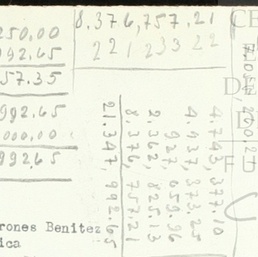 250.00
992.65
57.35
992.65
000.00
992.65
8,376,757.21
221 233 22
4.743,377.10
4.937,373.25
927,659.96
2.362,825.13
8.376,757.21
21.347,992.65
rones Benitez
ica